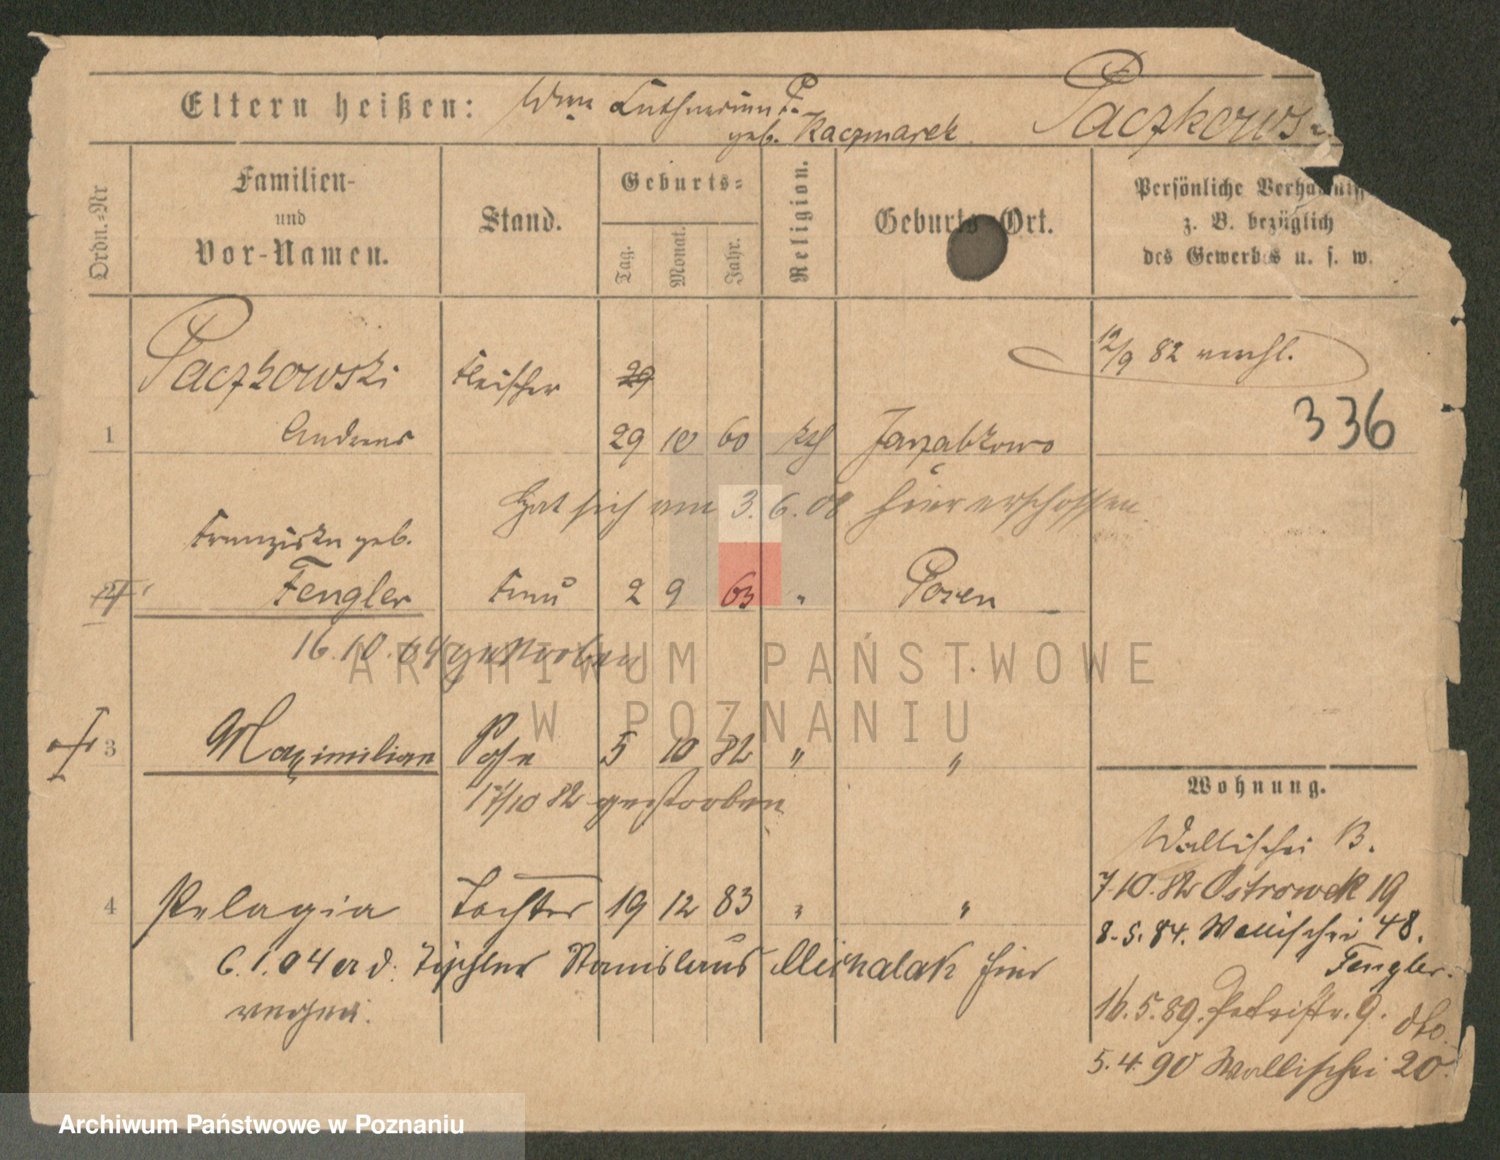 Eltern heißen: Wwe Katharina P.
geb. Kaczmarek
Paczkows
Ordn.-Nr
Familien-
und
Vor-Namen.
Stand.
Geburts-
Tag.
Monat.
Jahr.
Religion.
Geburts-Ort.
Persönliche Verh
z. B. bezüglich
des Gewerbes u. s. w.
Paczkowski Fleischer 29 12/9 82 verehl.
1 Andreas 29 10 60 kth Jarząbkowo
336
Hat sich am 3.6.08 hier erschossen
Franziska geb.
2 Fengler Frau 2 9 63 " Posen
16.10.04 gestorben
3 Maximilian Sohn 5 10 82 " "
17/10 82 gestorben
Wohnung.
Wallischei B.
7.10.82 Ostrowek 19
4 Pelagia Tochter 19 12 83 " "
8.5.84. Wallischei 48.
Fengler.
6.1.04 a. d. Tischler Stanislaus Michalak hier
verh.
16.5.89. Petristr. 9. dto.
5.4.90 Wallischei 20.
ARCHIWUM PAŃSTWOWE
W POZNANIU
Archiwum Państwowe w Poznaniu